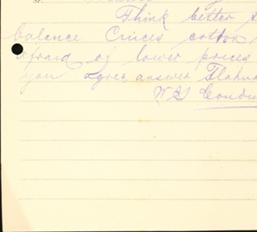 Think better
balance Cruces cotton
afraid of lower prices
you agree answer
W G